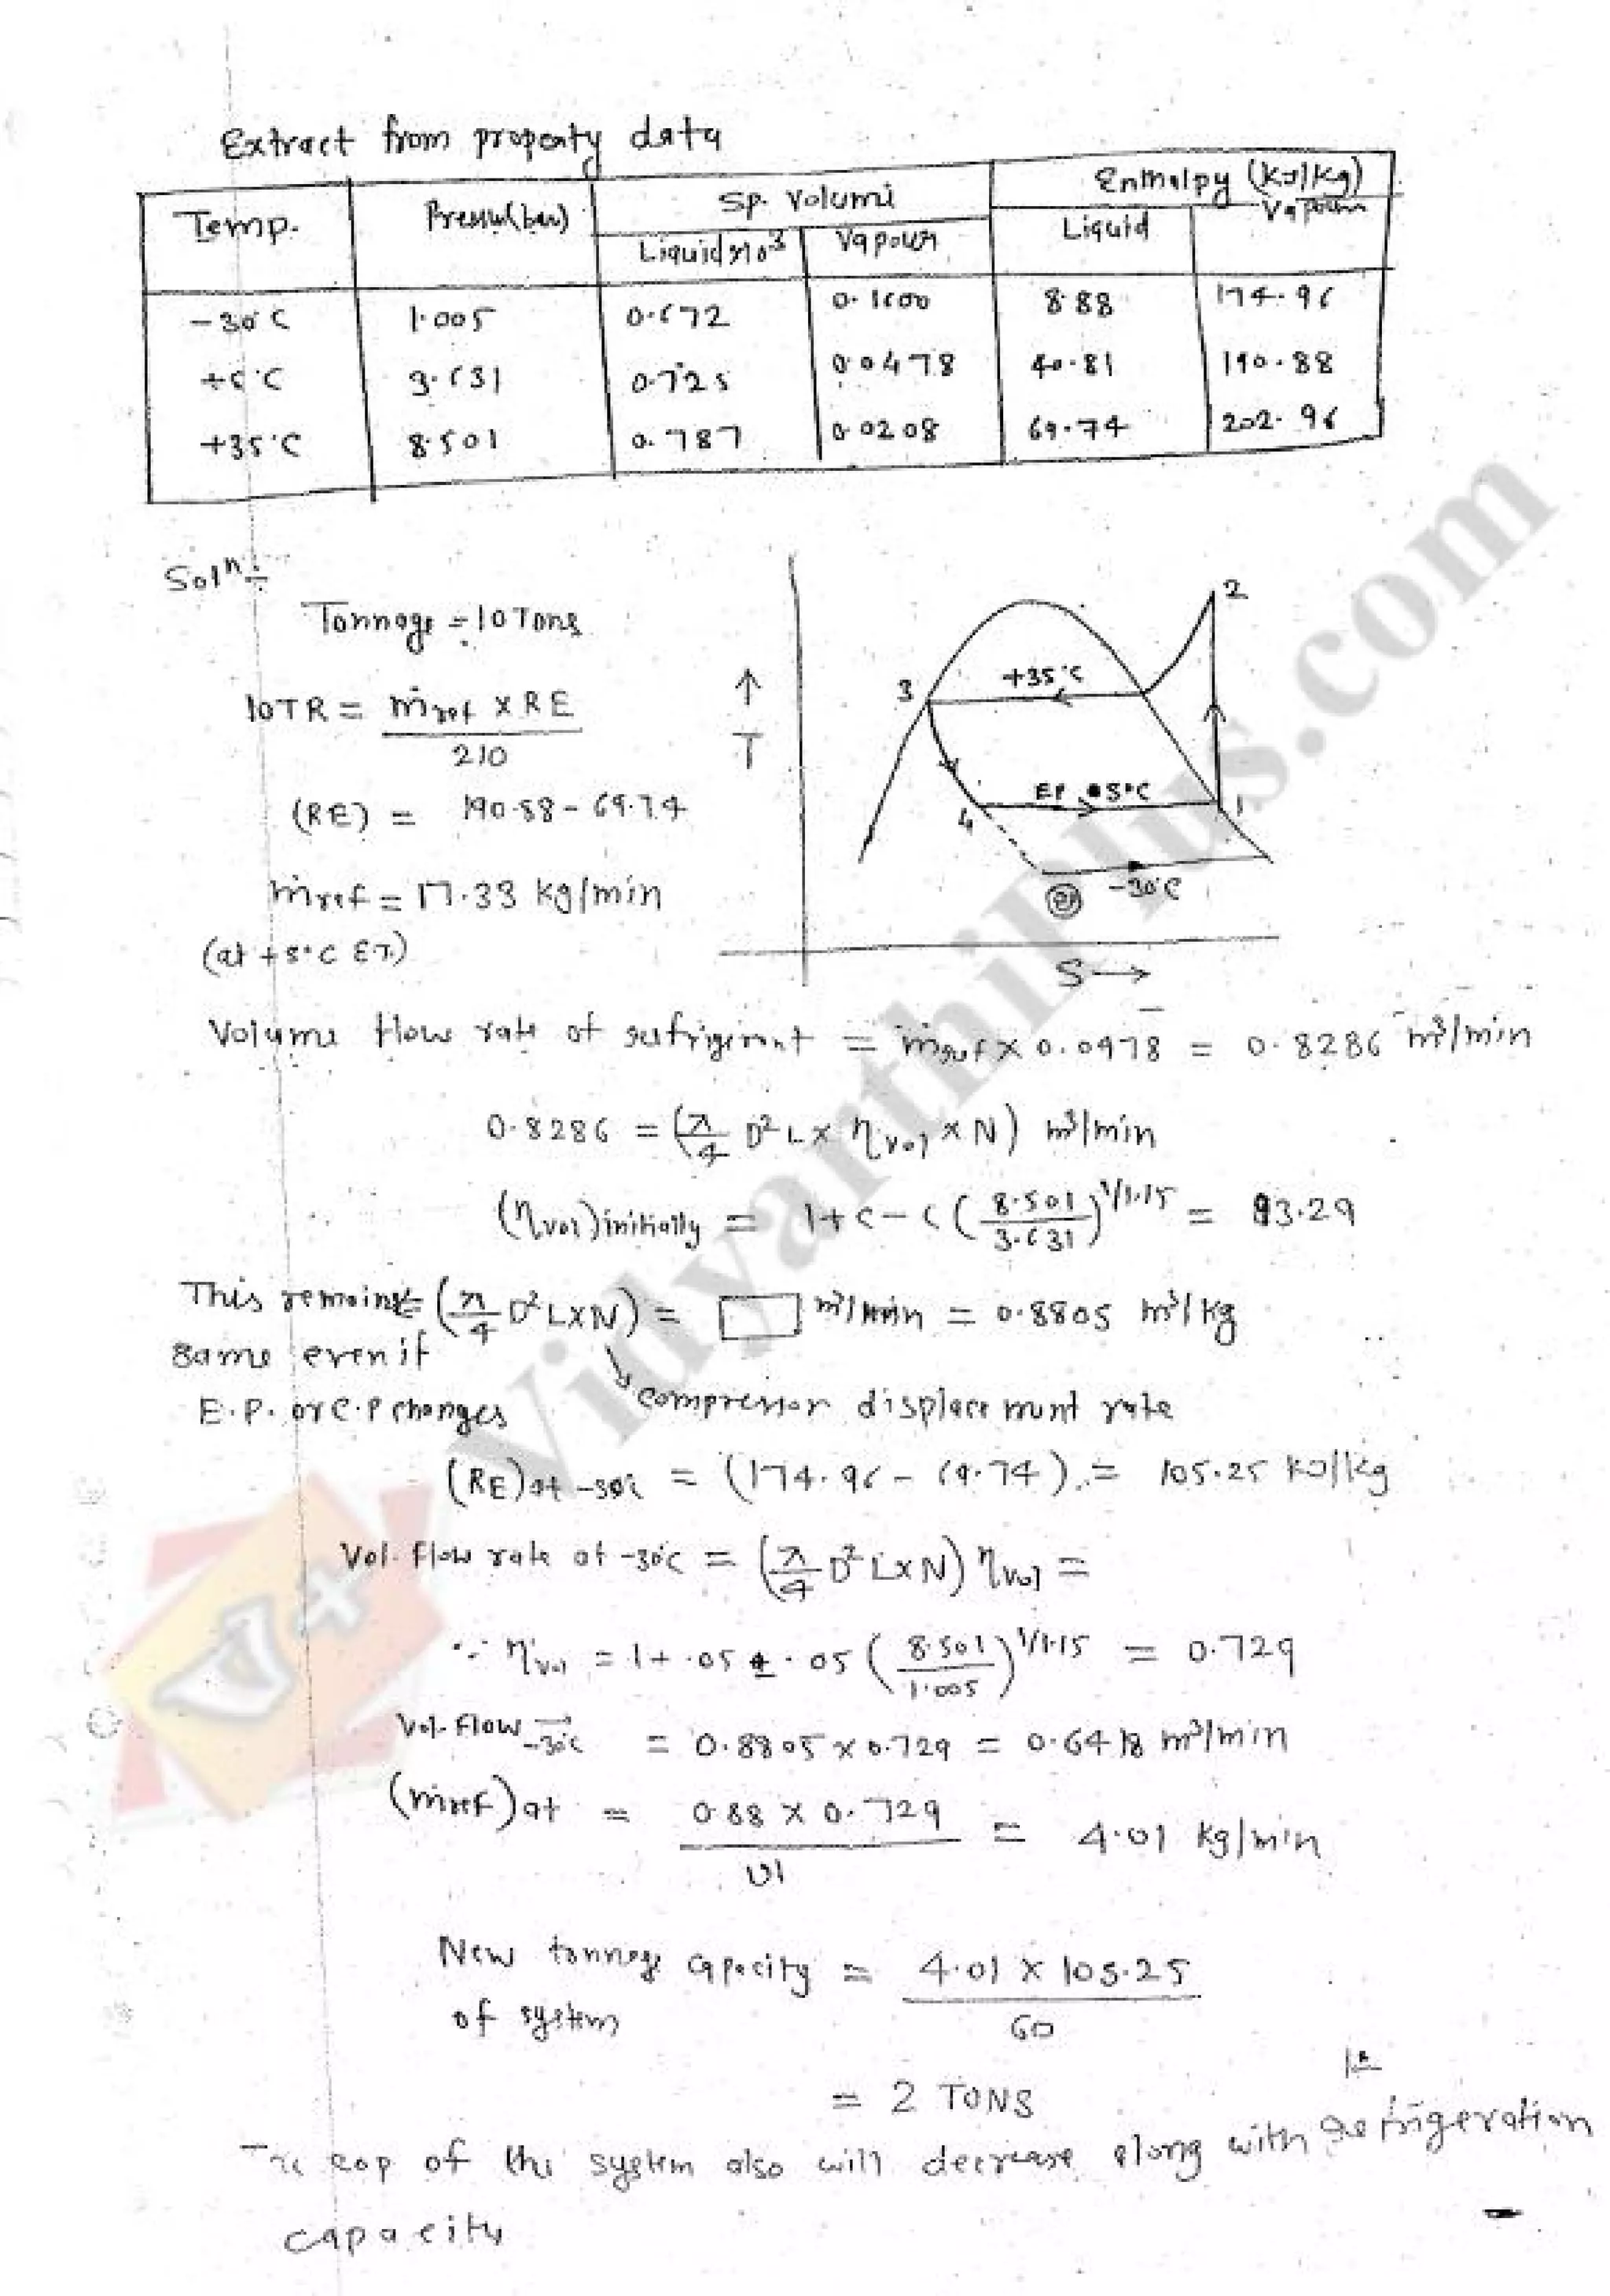 Extract from property data
Temp. Pressu(bar) Sp. Volumi Enthalpy (kJ/kg)
Liquid×10³ Vapour Liquid Vapour
-30°C 1.005 0.672 0.1600 8.88 174.96
+5°C 3.631 0.725 0.0478 40.81 190.88
+35°C 8.501 0.787 0.0208 69.74 202.96
Solⁿ:-
Tonnage = 10 Tons
10TR = ṁref × RE / 210
(RE) = 190.88 - 69.74
ṁref = 17.33 kg/min
(at +5°C ET)
2
3
+35°C
↑
T
EP 5°C
4
1
-30°C
S→
Volume flow rate of refrigirant = ṁref × 0.0478 = 0.8286 m³/min
0.8286 = (π/4 D²L × ηvol × N) m³/min
(ηvol)initially = 1+c-c(8.501/3.631)^1/1.15 = 93.29
This remains (π/4 D²L×N) = m³/min = 0.8805 m³/kg
same even if
E.P. or C.P changes
compressor displacement rate
(RE)at -30°c = (174.96 - 69.74) = 105.25 kJ/kg
Vol. flow rate at -30°C = (π/4 D²L×N) ηvol =
∵ ηvol = 1+.05-.05(8.501/1.005)^1/1.15 = 0.729
Vol. Flow -30°c = 0.8805 × 0.729 = 0.6418 m³/min
(ṁref)at = 0.88 × 0.729 / υ1 = 4.01 kg/min
New tonnage capacity = 4.01 × 105.25 / 60
of system
= 2 TONS
The cop of the system also will decrease along with Refrigeration
capacity
Vidyarthiplus.com
V+